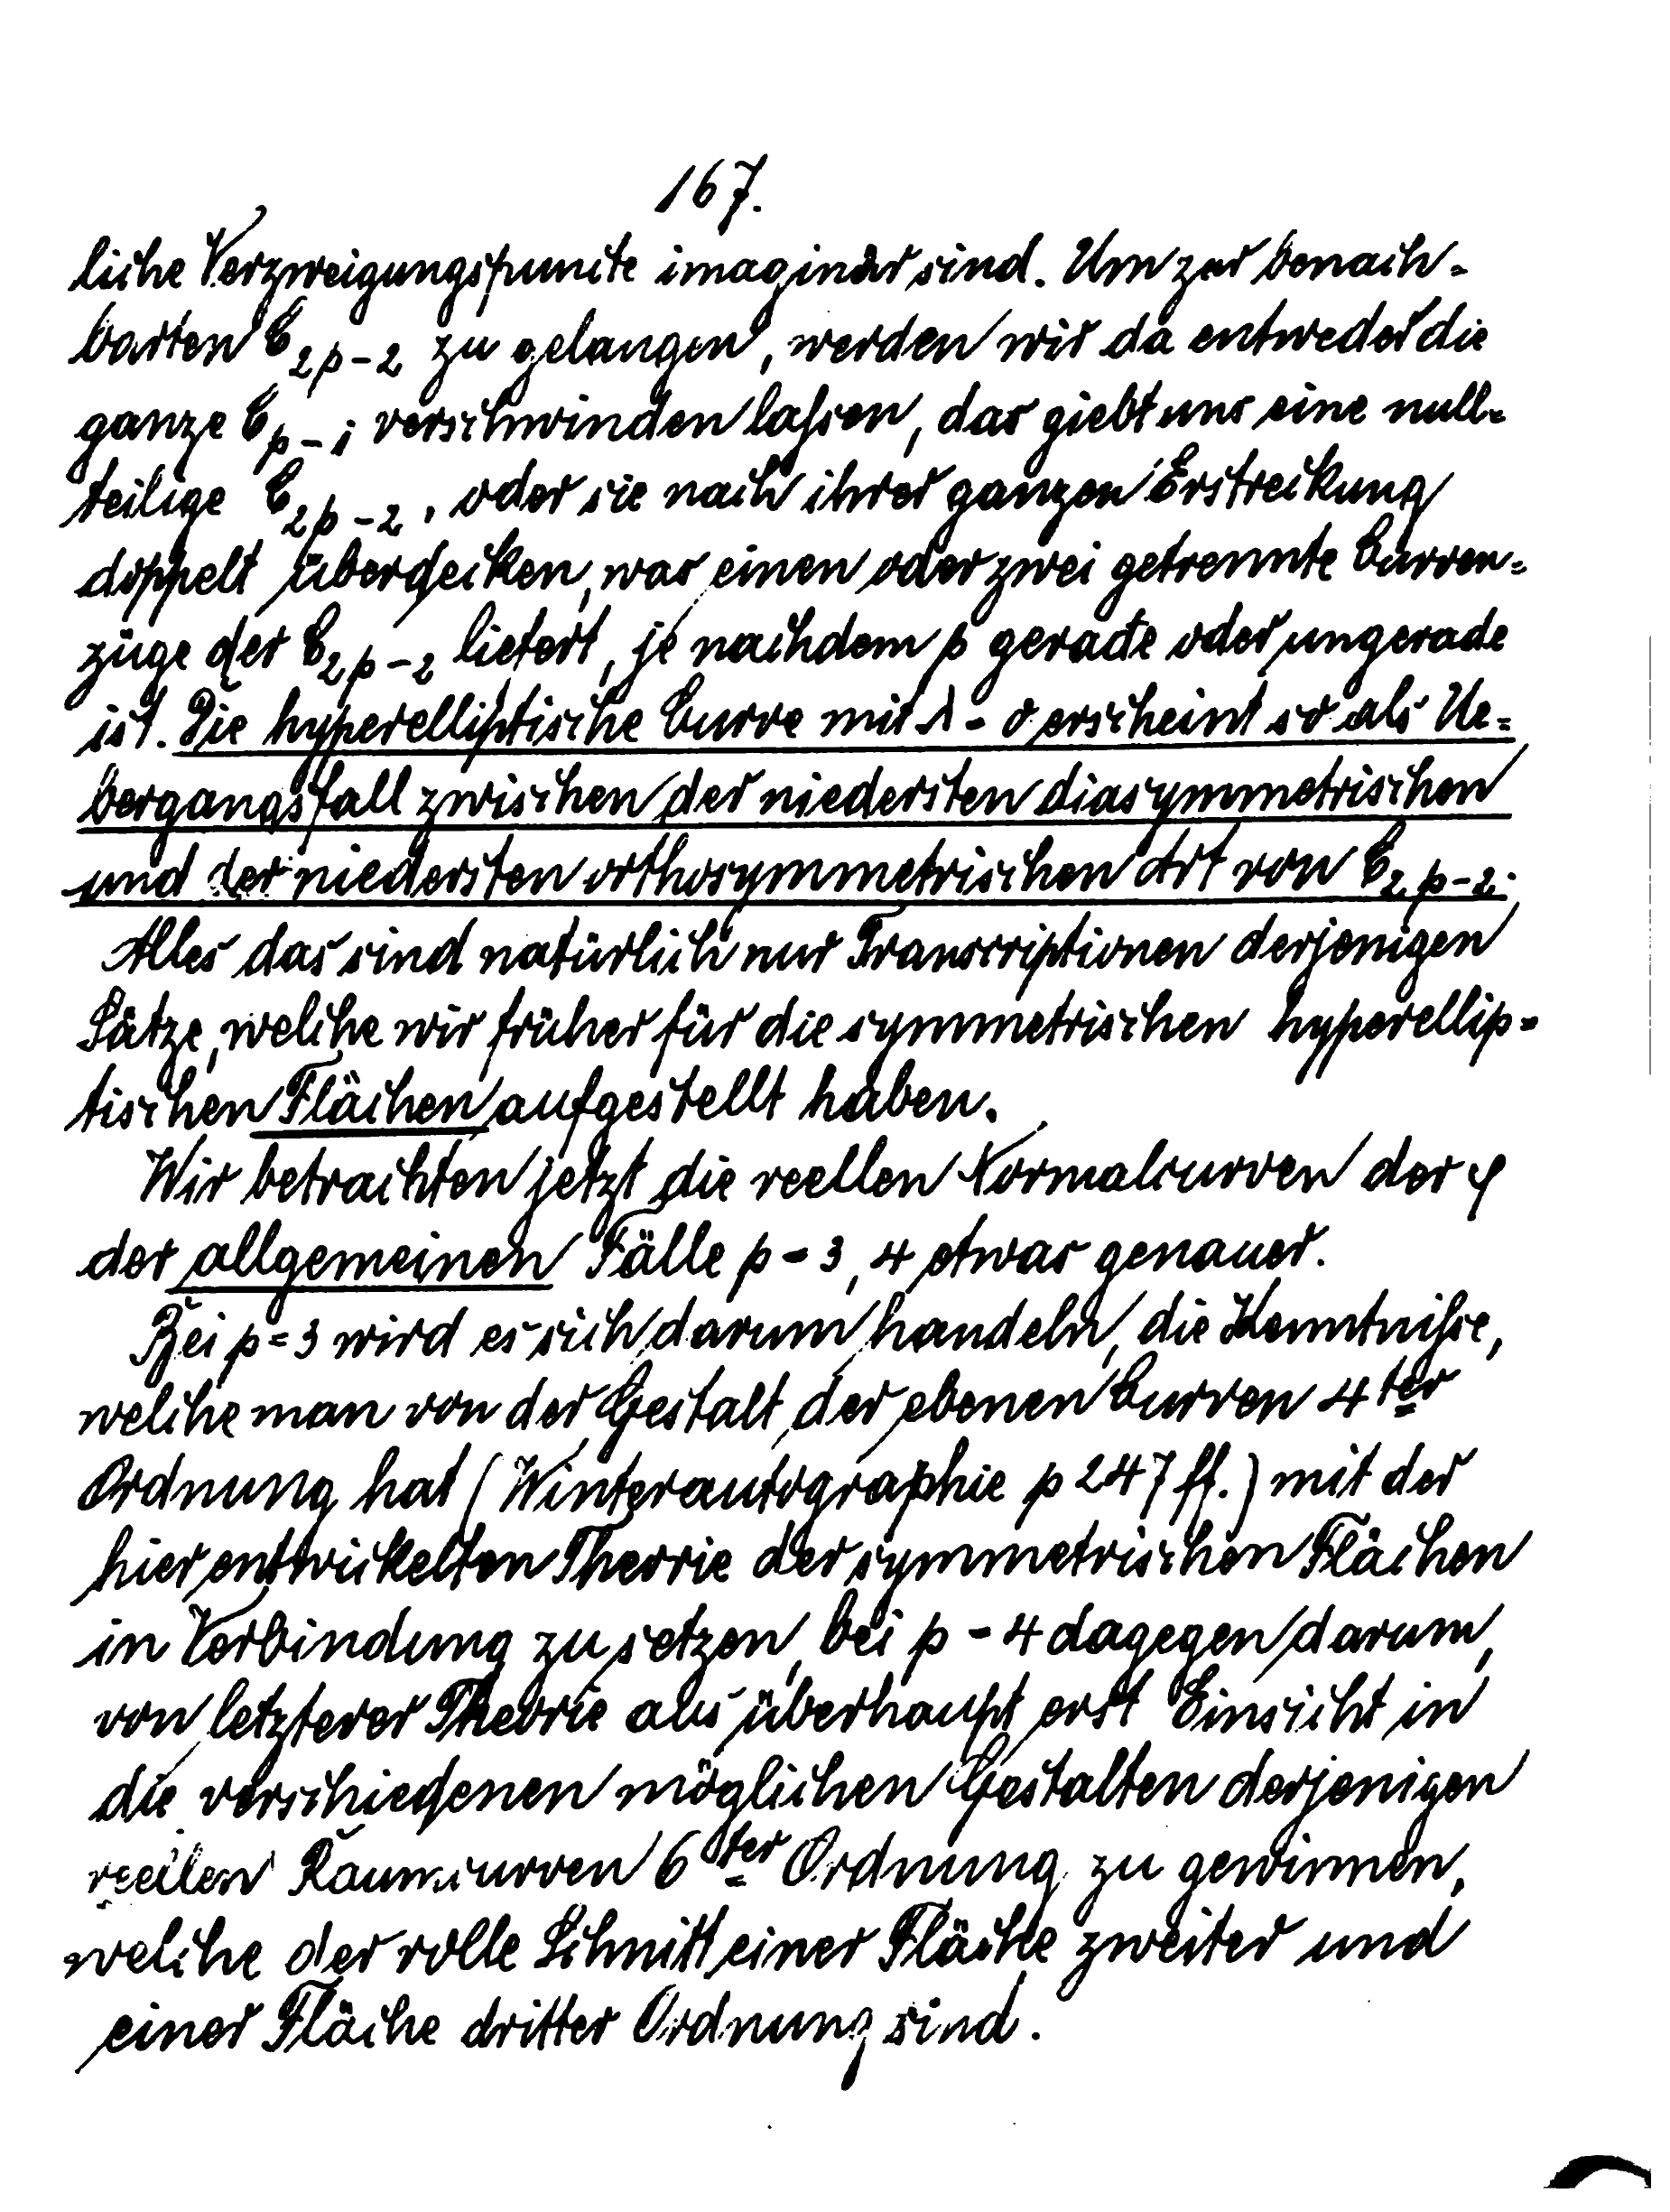 167.
liche Verzweigungspuncte imaginär sind. Um zur benach-
barten C_{2p-2} zu gelangen, werden wir da entweder die
ganze C_{p-1} verschwinden laſsen, das giebt uns eine null-
teilige C_{2p-2}, oder sie nach ihrer ganzen Erstreckung
doppelt überdecken, was einen oder zwei getrennte Curven-
züge der C_{2p-2} liefert, je nachdem p gerade oder ungerade
ist. Die hyperelliptische Curve mit λ = 0 erscheint so als Ue-
bergangsfall zwischen der niedersten diasymmetrischen
und der niedersten orthosymmetrischen Art von C_{2p-2}.
Alles das sind natürlich nur Transcriptionen derjenigen
Sätze, welche wir früher für die symmetrischen hyperellip-
tischen Flächen aufgestellt haben.
Wir betrachten jetzt die reellen Normalcurven der φ
der allgemeinen Fälle p = 3, 4 etwas genauer.
Bei p = 3 wird es sich darum handeln, die Kenntniſse,
welche man von der Gestalt der ebenen Curven 4ter
Ordnung hat (Winterautographie p 247 ff.) mit der
hier entwickelten Theorie der symmetrischen Flächen
in Verbindung zu setzen, bei p = 4 dagegen darum,
von letzterer Theorie aus überhaupt erst Einsicht in
die verschiedenen möglichen Gestalten derjenigen
reellen Raumcurven 6ter Ordnung zu gewinnen,
welche der volle Schnitt einer Fläche zweiter und
einer Fläche dritter Ordnung sind.